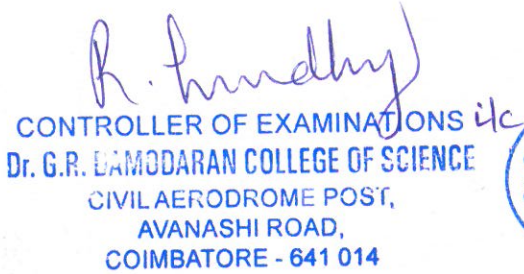 CONTROLLER OF EXAMINATIONS i/c
Dr. G.R. DAMODARAN COLLEGE OF SCIENCE
CIVIL AERODROME POST,
AVANASHI ROAD,
COIMBATORE - 641 014